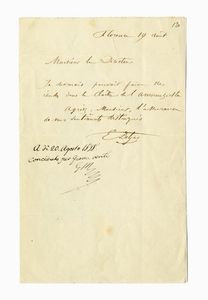 Florence 19 août
Monsieur le Directeur
Je désirerais pouvoir faire des
études dans le Cloître de l'Annunziata
Agréez, Monsieur, l'assurance
de mes sentiments distingués
E. Degas
A dì 20 Agosto 1858.
Concedesi per giorni venti